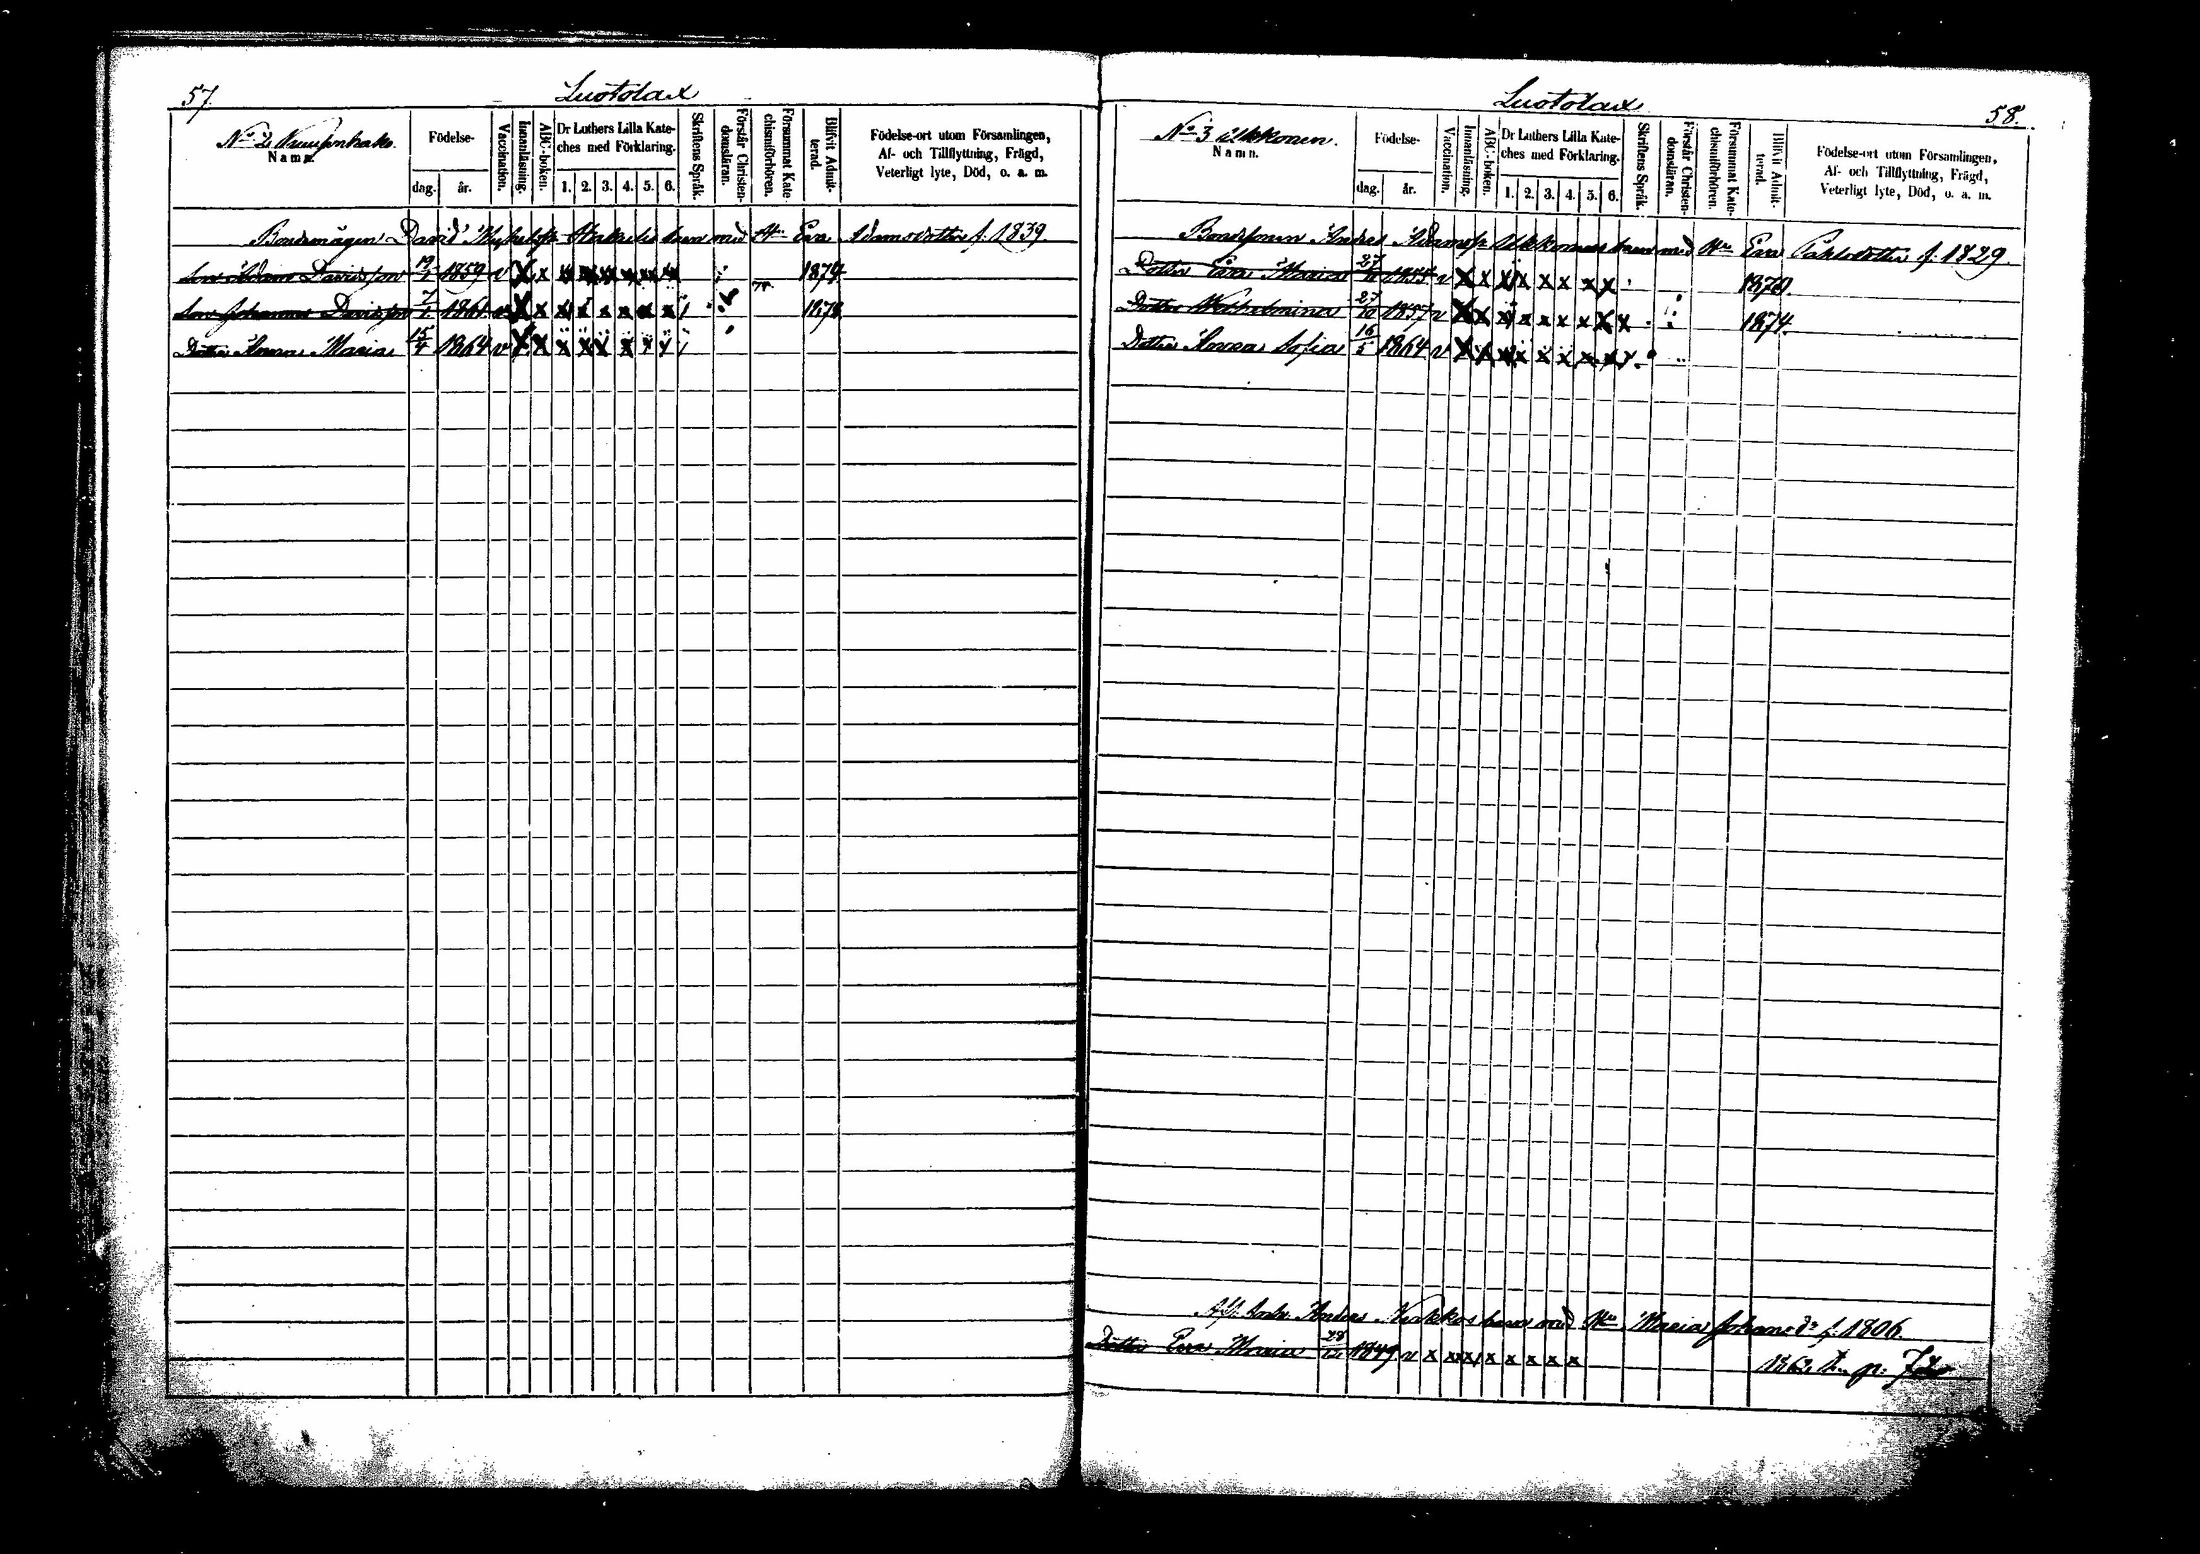 57. Luotolax
No 2
Namn.
Födelse-
dag. år.
Vaccination.
Innanläsning.
ABC-boken.
Dr Luthers Lilla Kate-
ches med Förklaring.
1. 2. 3. 4. 5. 6.
Skriftens Språk.
Förstår Christen-
domsläran.
Försummat Kate-
chismiförhören.
Blifvit Admit-
terad.
Födelse-ort utom Församlingen,
Af- och Tillflyttning, Frägd,
Veterligt lyte, Död, o. a. m.
Bondemågen David barn med Eva Adamsdotter f. 1839
Son Adam Davidsson 19/1 1859 v X x 1874
Son Johannes Davidsson 7/1 1861 v X x x x x x x x 1878
Dotter Anna Maria 15/4 1864 v X X x x x x x x
Luotolax 58.
No 3 Ukkonen.
Namn.
Födelse-
dag. år.
Vaccination.
Innanläsning.
ABC-boken.
Dr Luthers Lilla Kate-
ches med Förklaring.
1. 2. 3. 4. 5. 6.
Skriftens Språk.
Förstår Christen-
domsläran.
Försummat Kate-
chismiförhören.
Blifvit Admit-
terad.
Födelse-ort utom Församlingen,
Af- och Tillflyttning, Frägd,
Veterligt lyte, Död, o. a. m.
Bondesonen Anders Adamss. Ukkonens barn med Hu Eva Påhlsdotter f. 1829.
Dotter Eva Maria 27/10 v X x x x x x x x
Dotter Wilhelmina 27/10 1857 v X x x x x x x x x 1874.
Dotter Anna Sofia 16/5 1864 v X x x x x x x x
Anders barn med Hu Maria Johansdr f. 1806.
Dotter Eva Maria 28/12 1849 v x x x x x x x x